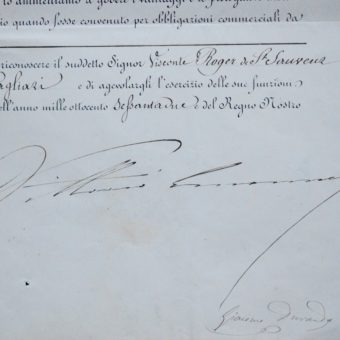 ammettiamo a godere i vantaggi e
io quando fosse convenuto per obbligazioni commerciali da
riconoscere il suddetto Signor Visconte Roger di St. Sauveur
agliari e di agevolargli l'esercizio delle sue funzioni
ell'anno mille ottocento sessantadue e del Regno Nostro
Vittorio Emanuele
Giacomo Durando